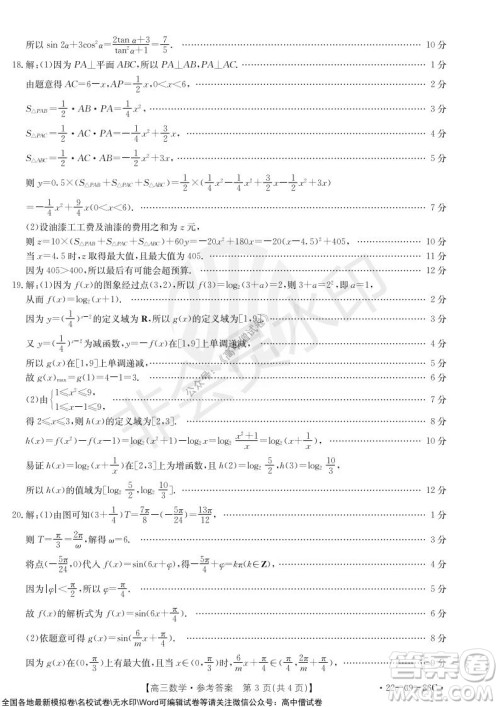 所以 sin 2a+3cos²a=(2tan a+3)/(tan²a+1)=7/5. 10分
18.解:(1)因为 PA⊥平面 ABC,所以 PA⊥AB,PA⊥AC. 1分
由题意得 AC=6-x,AP=1/2 x,0<x<6, 2分
S△PAB=1/2·AB·PA=1/4 x², 3分
S△PAC=1/2·AC·PA=-1/4 x²+3/2 x, 4分
S△ABC=1/2·AB·AC=-1/2 x²+3x, 5分
则 y=0.5×(S△PAB+S△PAC+S△ABC)=1/2×(1/4 x²-1/4 x²+3/2 x-1/2 x²+3x)
=-1/4 x²+9/4 x(0<x<6). 7分
(2)设油漆工工费及油漆的费用之和为 z 元,
则 z=10×(S△PAB+S△PAC+S△ABC)+60y=-20x²+180x=-20(x-4.5)²+405.
当 x=4.5 时,z 取得最大值,且最大值为 405.
因为 405>400,所以可能会超预算. 12分
19.解:(1)因为 f(x)的图象经过点(3,2),所以 f(3)=log₂(3+a)=2,则 3+a=2²,即 a=1, 1分
从而 f(x)=log₂(x+1). 2分
因为 y=(1/4)ˣ⁻¹的定义域为 R,所以 g(x)的定义域为[1,9]. 3分
又 y=(1/4)ˣ⁻¹为减函数,
所以 g(x)在[1,9]上单调递减, 5分
故 g(x)max=g(1)=4-1=3. 6分
(2)由{1≤x²≤9,
1≤x≤9, 8分
得 1≤x≤3,所以 h(x)的定义域为[1,3].
h(x)=f(x²)-f(x-1)=log₂(x²+1)-log₂x=log₂ (x²+1)/x
易证 h(x)在 上为增函数,
所以 h(x)的值域为[log₂ 5/2,log₂ 10/3]. 12分
20.解:(1)由图可知(3+1/4)T=7π/8-(-5π/24)=13π/12, 1分
则 T=π/3=2π/ω,解得 ω=6. 2分
将点(-5π/24,0)代入 f(x)=sin(6x+φ),得 =kπ(k∈Z). 4分
因为|φ|<π/2,所以 φ=π/4. 5分
故 f(x)的解析式为 f(x)=sin(6x+π/4). 6分
(2)依题意可得 g(x)= 8分
【高三数学·参考答案 第3页(共4页)】
全国各地最新模拟卷\名校试卷\无水印\Word可编辑试卷等请关注微信公众号:高中僧试卷